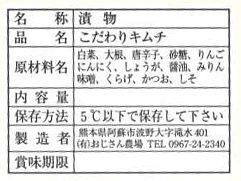 名称 漬物
品名 こだわりキムチ
原材料名 白菜、大根、唐辛子、砂糖、りんご
にんにく、しょうが、醤油、みりん
味噌、くらげ、かつお、しそ
内容量
保存方法 5℃以下で保存して下さい
製造者 熊本県阿蘇市波野大字滝水401
(有)おじさん農場 TEL 0967-24-2340
賞味期限